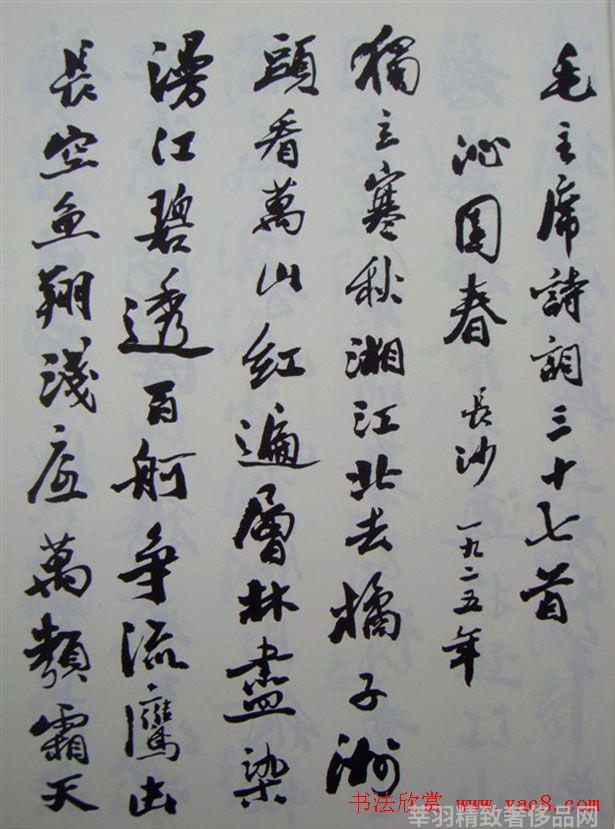 毛主席詩詞三十七首
沁園春 長沙 一九二五年
獨立寒秋湘江北去橘子洲
頭看萬山紅遍層林盡染
漫江碧透百舸争流鷹击
長空鱼翔淺底萬類霜天
书法欣赏 www.yac8.com
莘羽精致奢侈品网